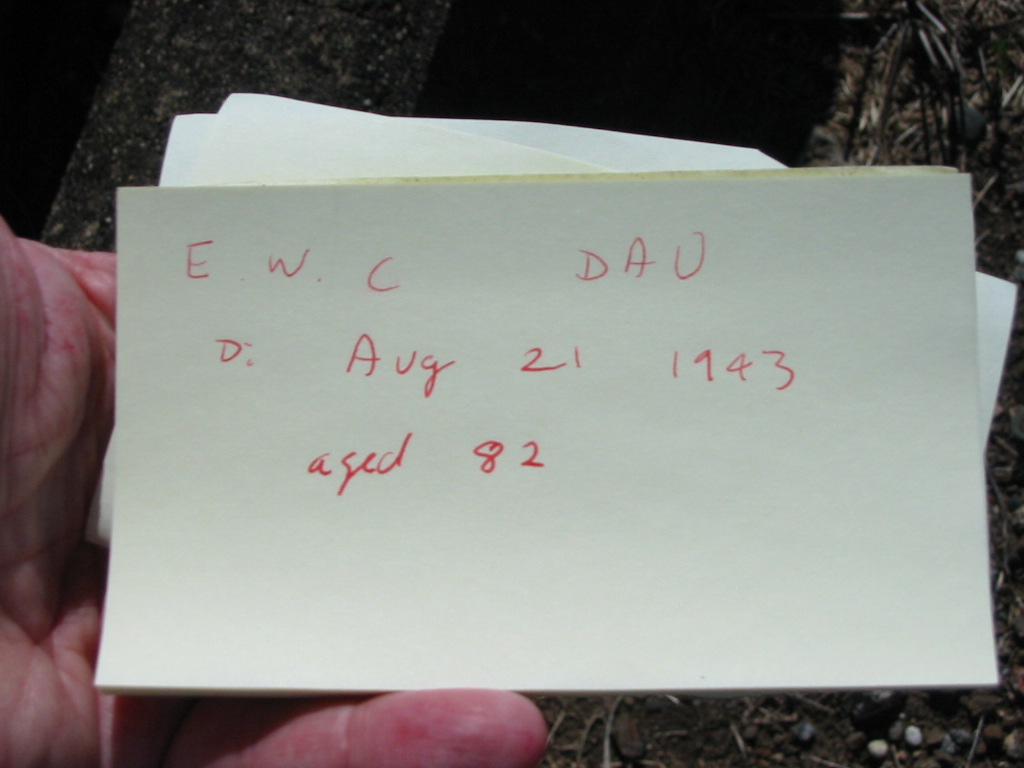 E. W. C DAU
D: Aug 21 1943
aged 82